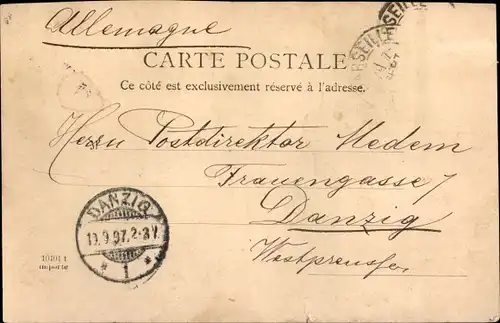 Allemagne
CARTE POSTALE
Ce côté est exclusivement réservé à l'adresse.
Herrn Postdirektor Medem
Frauengasse 7
Danzig
Westpreussen
DANZIG
19.9.97.2-3V.
* 1 *